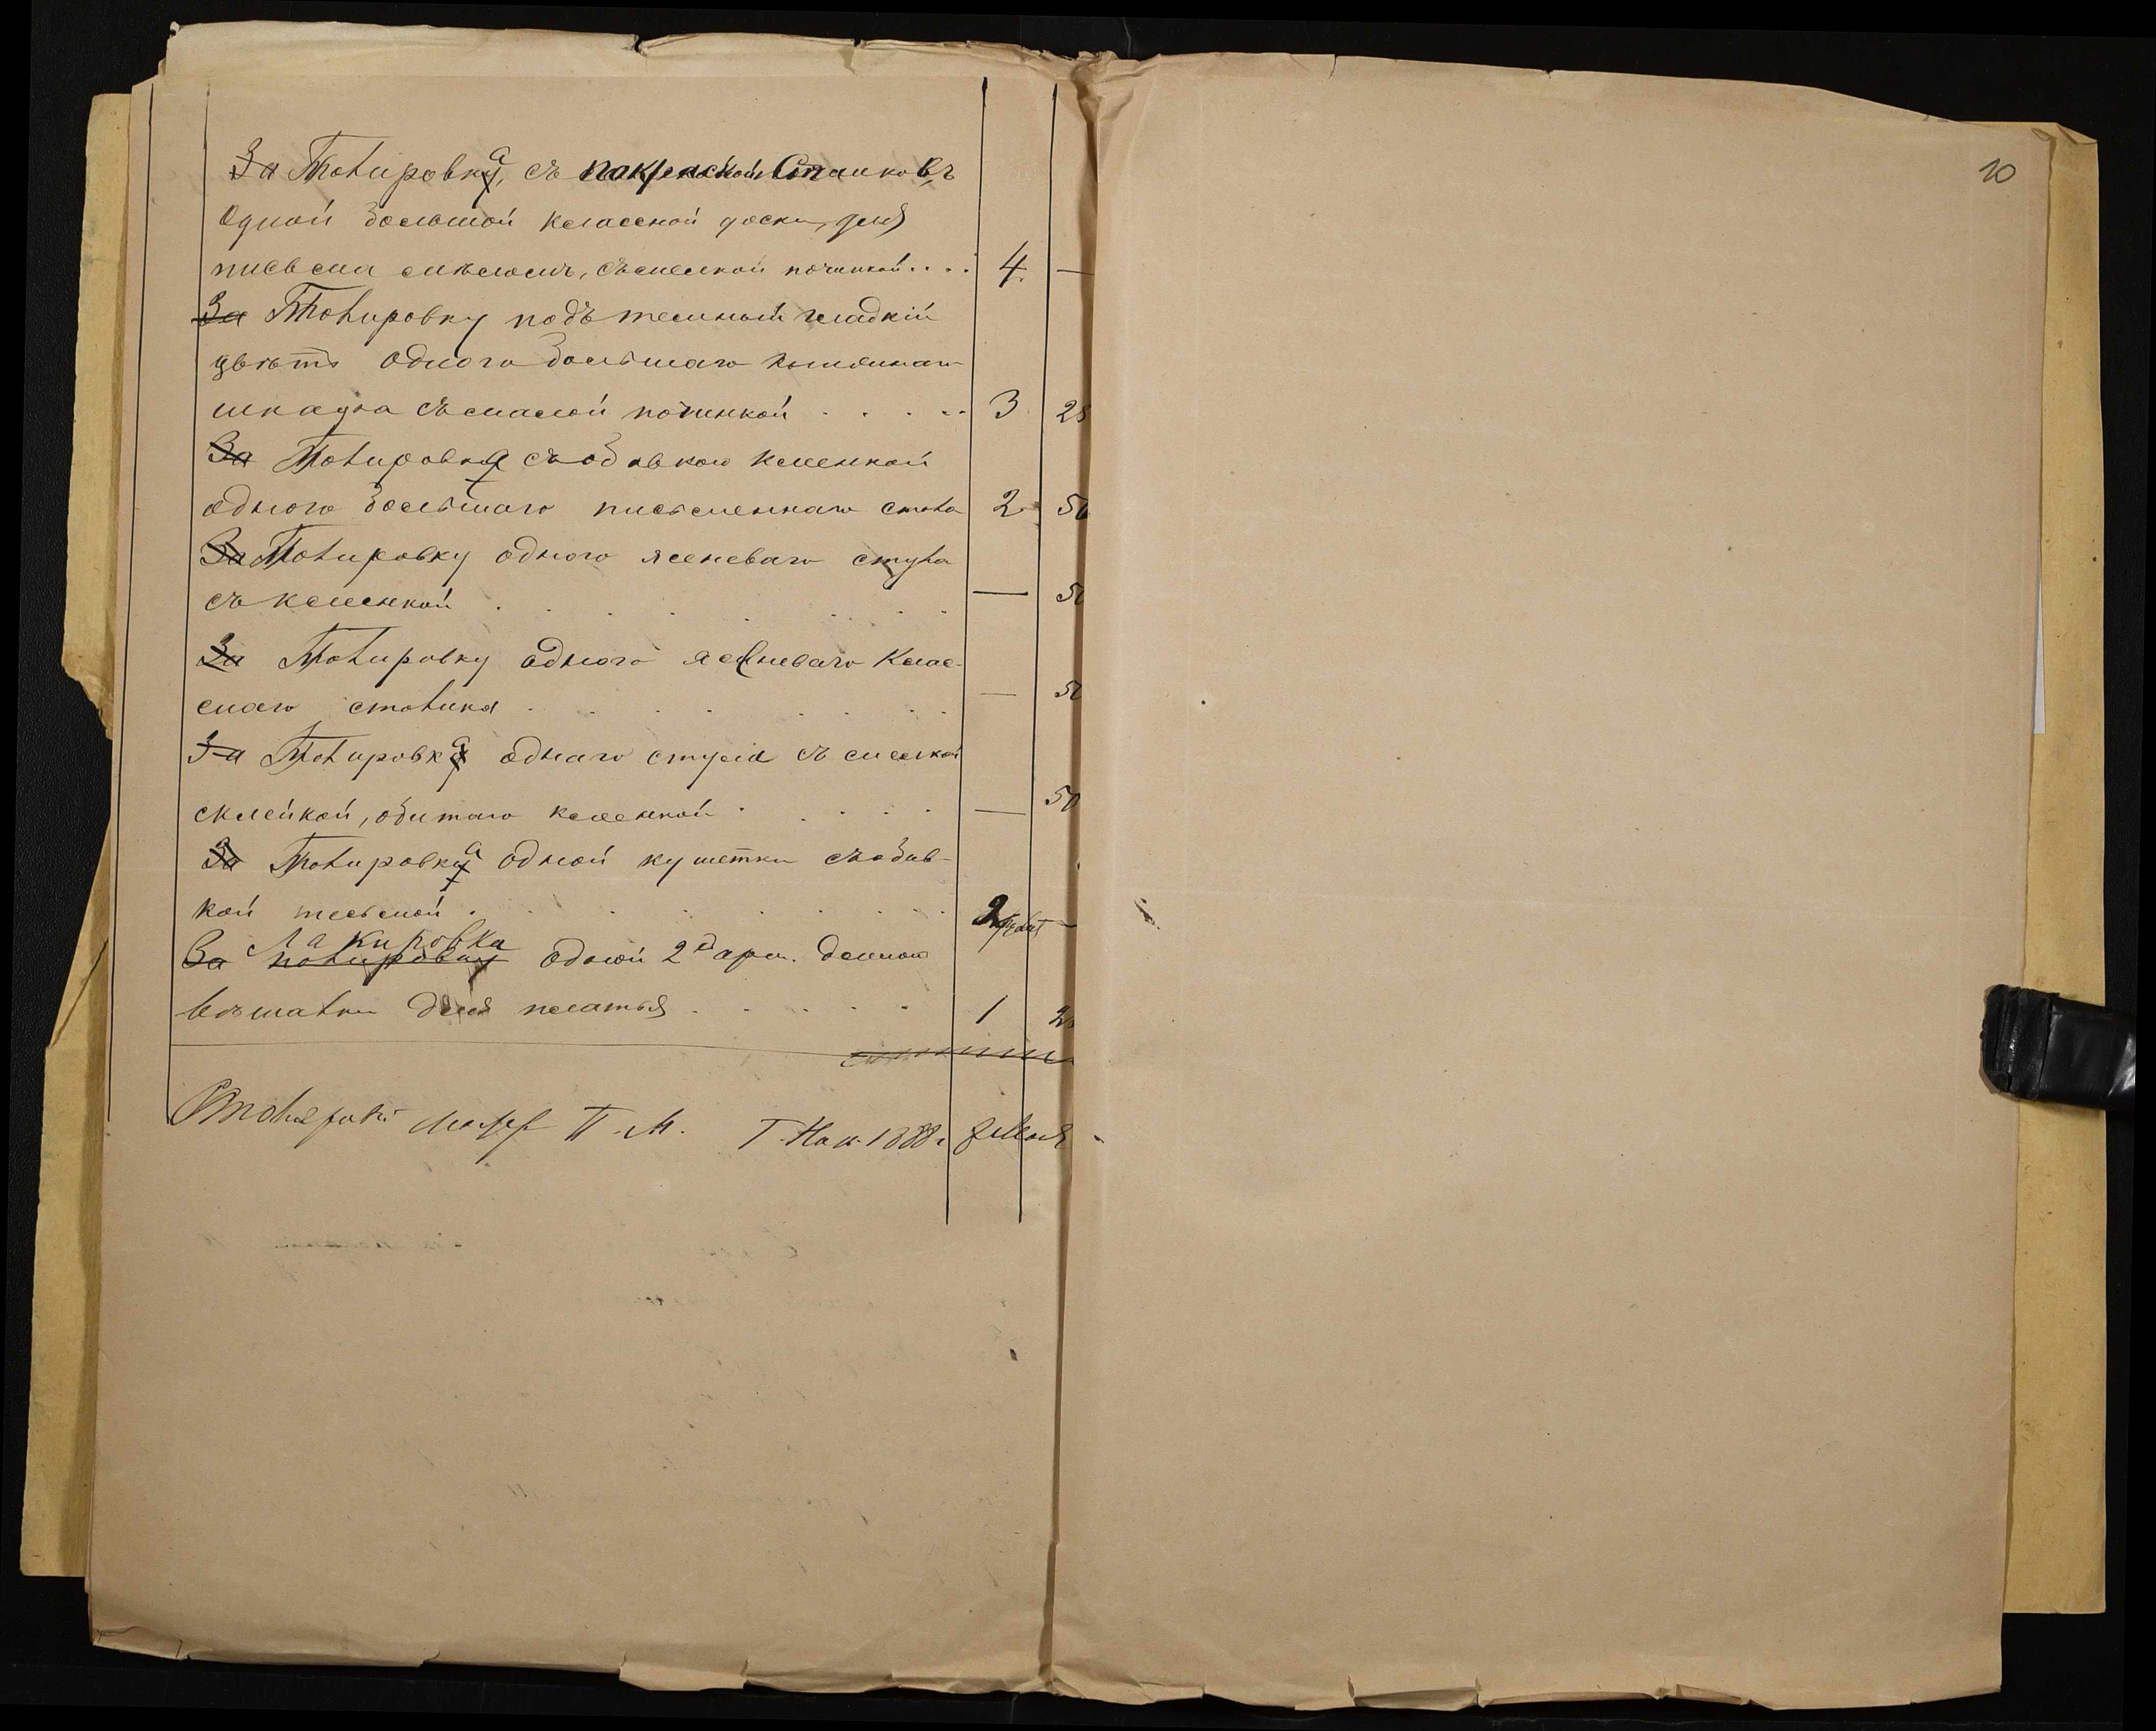 10
~~За~~ Полировка, съ покраской Станковъ
Одной большой классной доски, для
письма мѣломъ, съ мелкой починкой.... 4. —
~~За~~ Полировку подъ темный гладкій
цвѣтъ одного большаго книжнаго
шкафа съ малой починкой . . . . . 3 25
~~За~~ Полировка съ обивкою клеенкой
одного большаго письменнаго стола 2 50
~~За~~ Полировку одного ясеневаго стула
съ клеенкой . . . . . — 50
~~За~~ Полировку одного ясеневаго Клас-
снаго столика . . . . . — 50
~~За~~ Полировка одного стула съ мелкой
склейкой, обитаго клеенкой . . . . — 50
~~За~~ Полировка одной кушетки съ обив-
кой тесьмой . . . . . 2 —
Лакировка
~~За~~ ~~полировку~~ одной 2й арш. длиною
вѣшалки для платья . . . . . 1 25
Столярный П. М. Г. Ник. 1888 г. 8 Мая